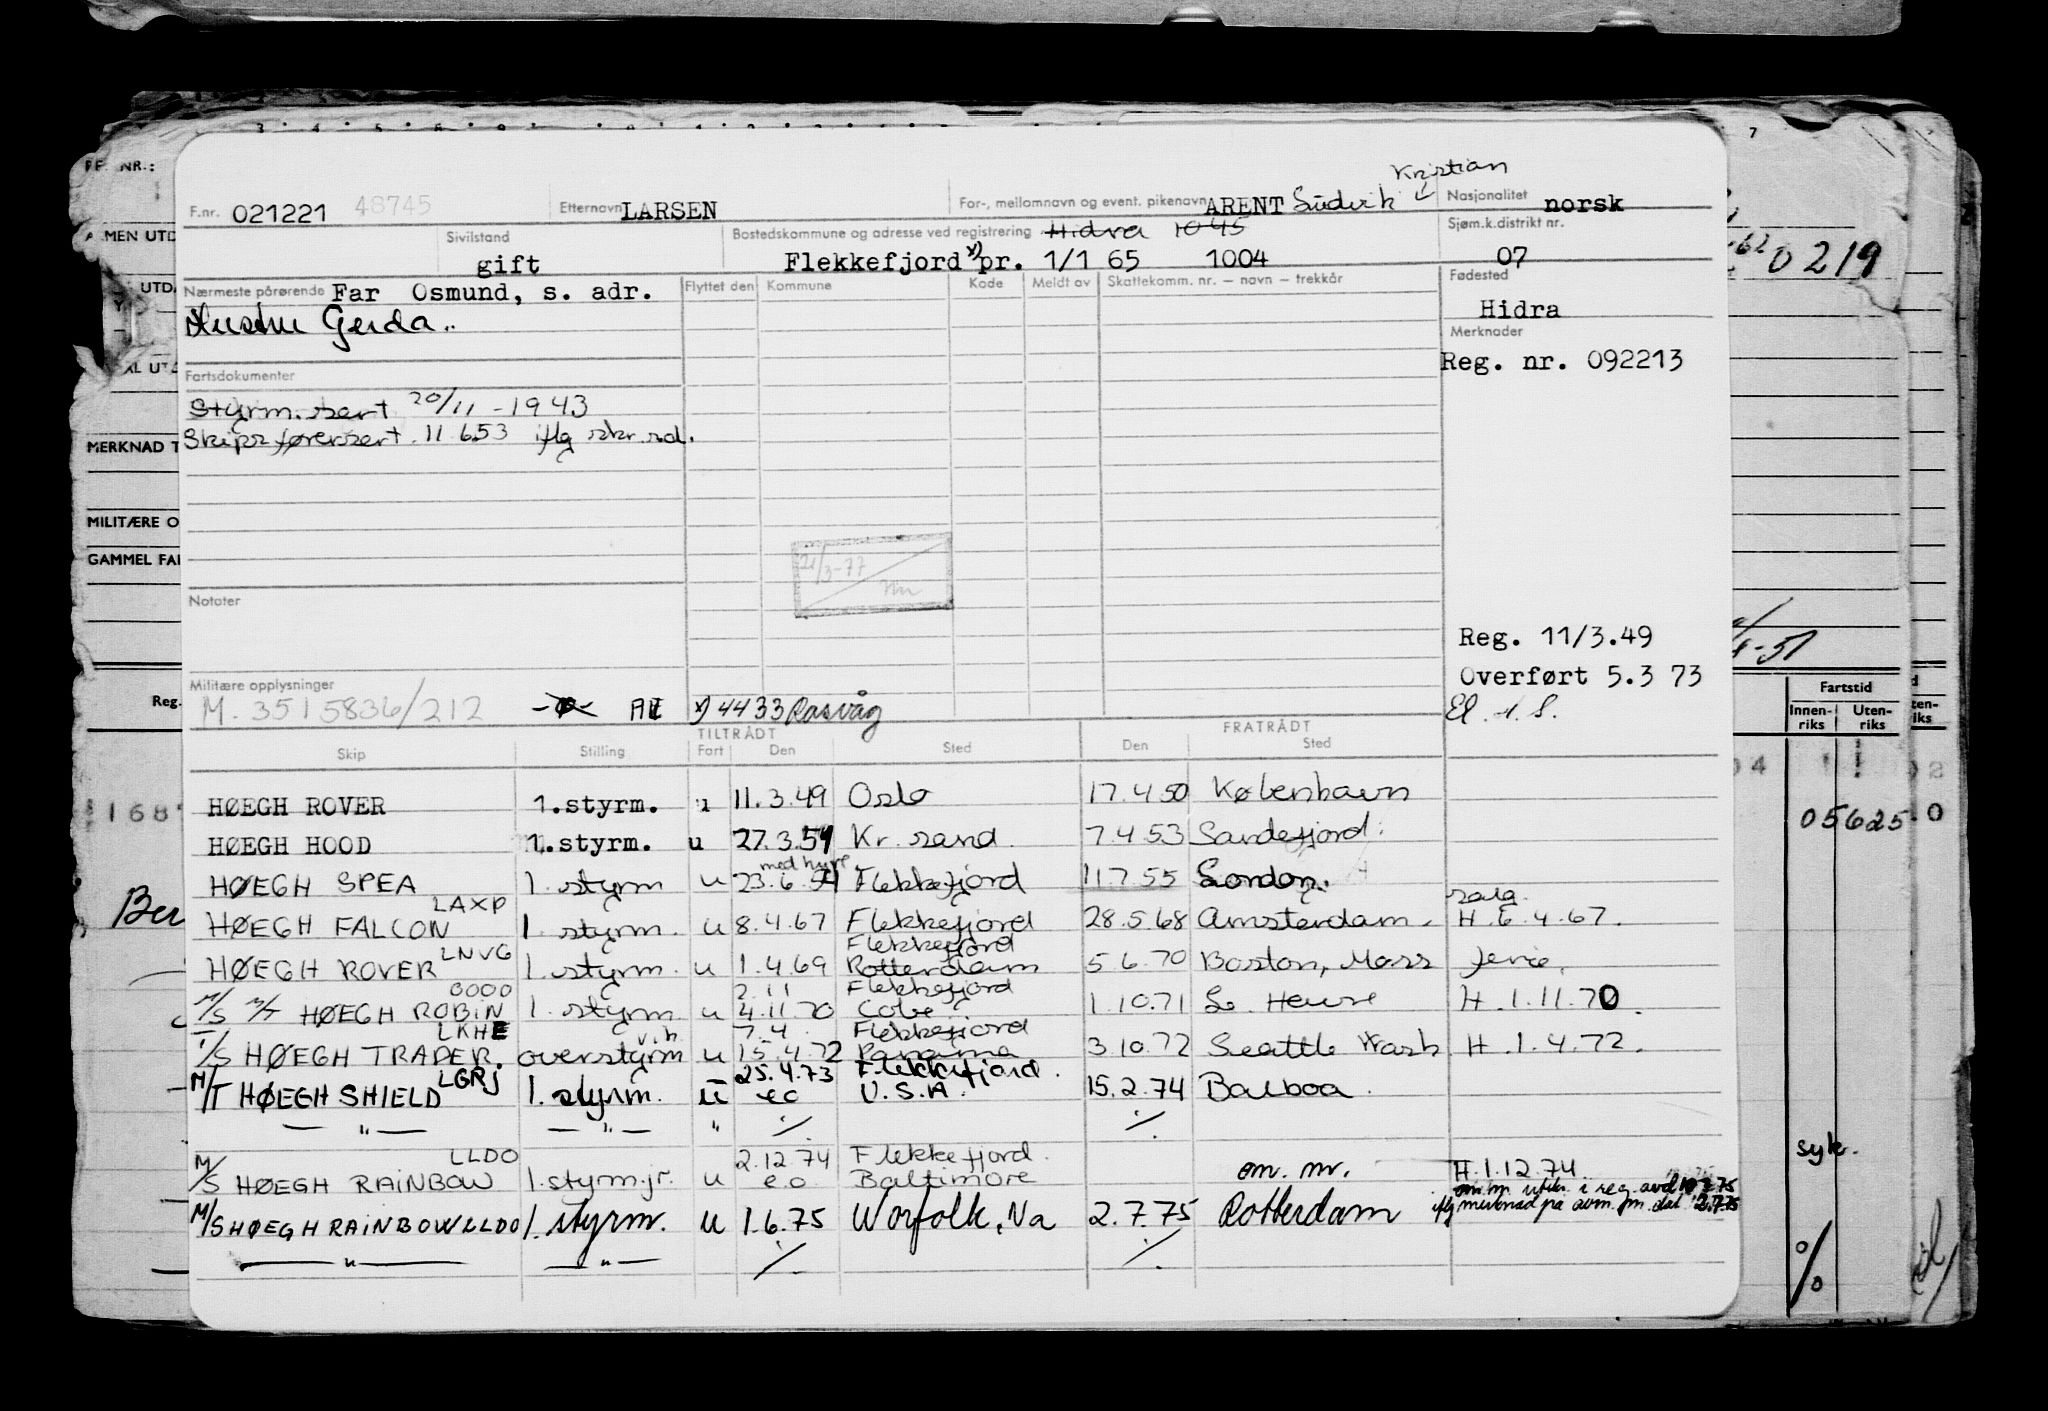 Kristian
F.nr. 021221 48745 Etternavn LARSEN For-, mellomnavn og event. pikenavn ARENT Nasjonalitet norsk
Sivilstand gift Bostedskommune og adresse ved registrering Hidra 1045 Sjøm.k.distrikt nr. 07
Flekkefjord x) pr. 1/1 65 1004
Nærmeste pårørende Far Osmund, s. adr. Flyttet den Kommune Kode Meldt av Skattekomm. nr. – navn – trekkår Fødested
Hustru Gerda.. Hidra
Merknader
Reg. nr. 092213
Fartsdokumenter
Styrm.sert 20/11 -1943
Skipsførersert. 11 6.53 iflg skr. sd.
21/3-77
Notater
Reg. 11/3.49
Overført 5.3 73
Militære opplysninger
M. 3515836/212 x) 4433 Rasvåg
TILTRÅDT FRATRÅDT
Skip Stilling Fart Den Sted Den Sted
HØEGH ROVER 1.styrm. u 11.3.49 Oslo 17.4 50 København
HØEGH HOOD 1.styrm. u 27.3.51 Kr. sand. 7.4.53 Sandefjord.
med hyre
HØEGH SPEA 1. styrm u 23.6.54 Flekkefjord 11.7.55 London.
LAXP salg.
HØEGH FALCON 1. styrm. u 8.4.67 Flekkefjord 28.5.68 Amsterdam. H. 6.4.67.
LNVG Flekkefjord
HØEGH ROVER 1. styrm. u 1.4.69 Rotterdam 5.6.70 Boston, Mass ferie.
OOOO 2.11 Flekkefjord
M/S M/T HØEGH ROBIN 1. styrm u 4.11.70 Cobe 1.10.71 H. 1.11.70.
LKHE v.h. 7.4. Flekkefjord
T/S HØEGH TRADER. overstyrm u 15.4.72 Panama 3.10.72 Seattle Wash H. 1.4.72.
LGRJ 25.4.73 Flekkefjord.
M/T HØEGH SHIELD 1. styrm. u eo U.S.A. 15.2.74 Balboa.
— " — — " — " ·/. ·/.
LLDO 2.12.74 Flekkefjord.
M/S HØEGH RAINBOW 1.styrm.jr. u e.o. Baltimore om. mr. H.1.12.74.
M/S HØEGH RAINBOW LLDO 1. styrm. u 1.6.75 Norfolk, Va 2.7.75 Rotterdam
— " — — " — ·/. ·/.
MERKNAD T
MILITÆRE O
GAMMEL FAR
Reg.
168
Ber
0219
7
Fartstid
Innen- riks Uten- riks
05625
0
syk.
%